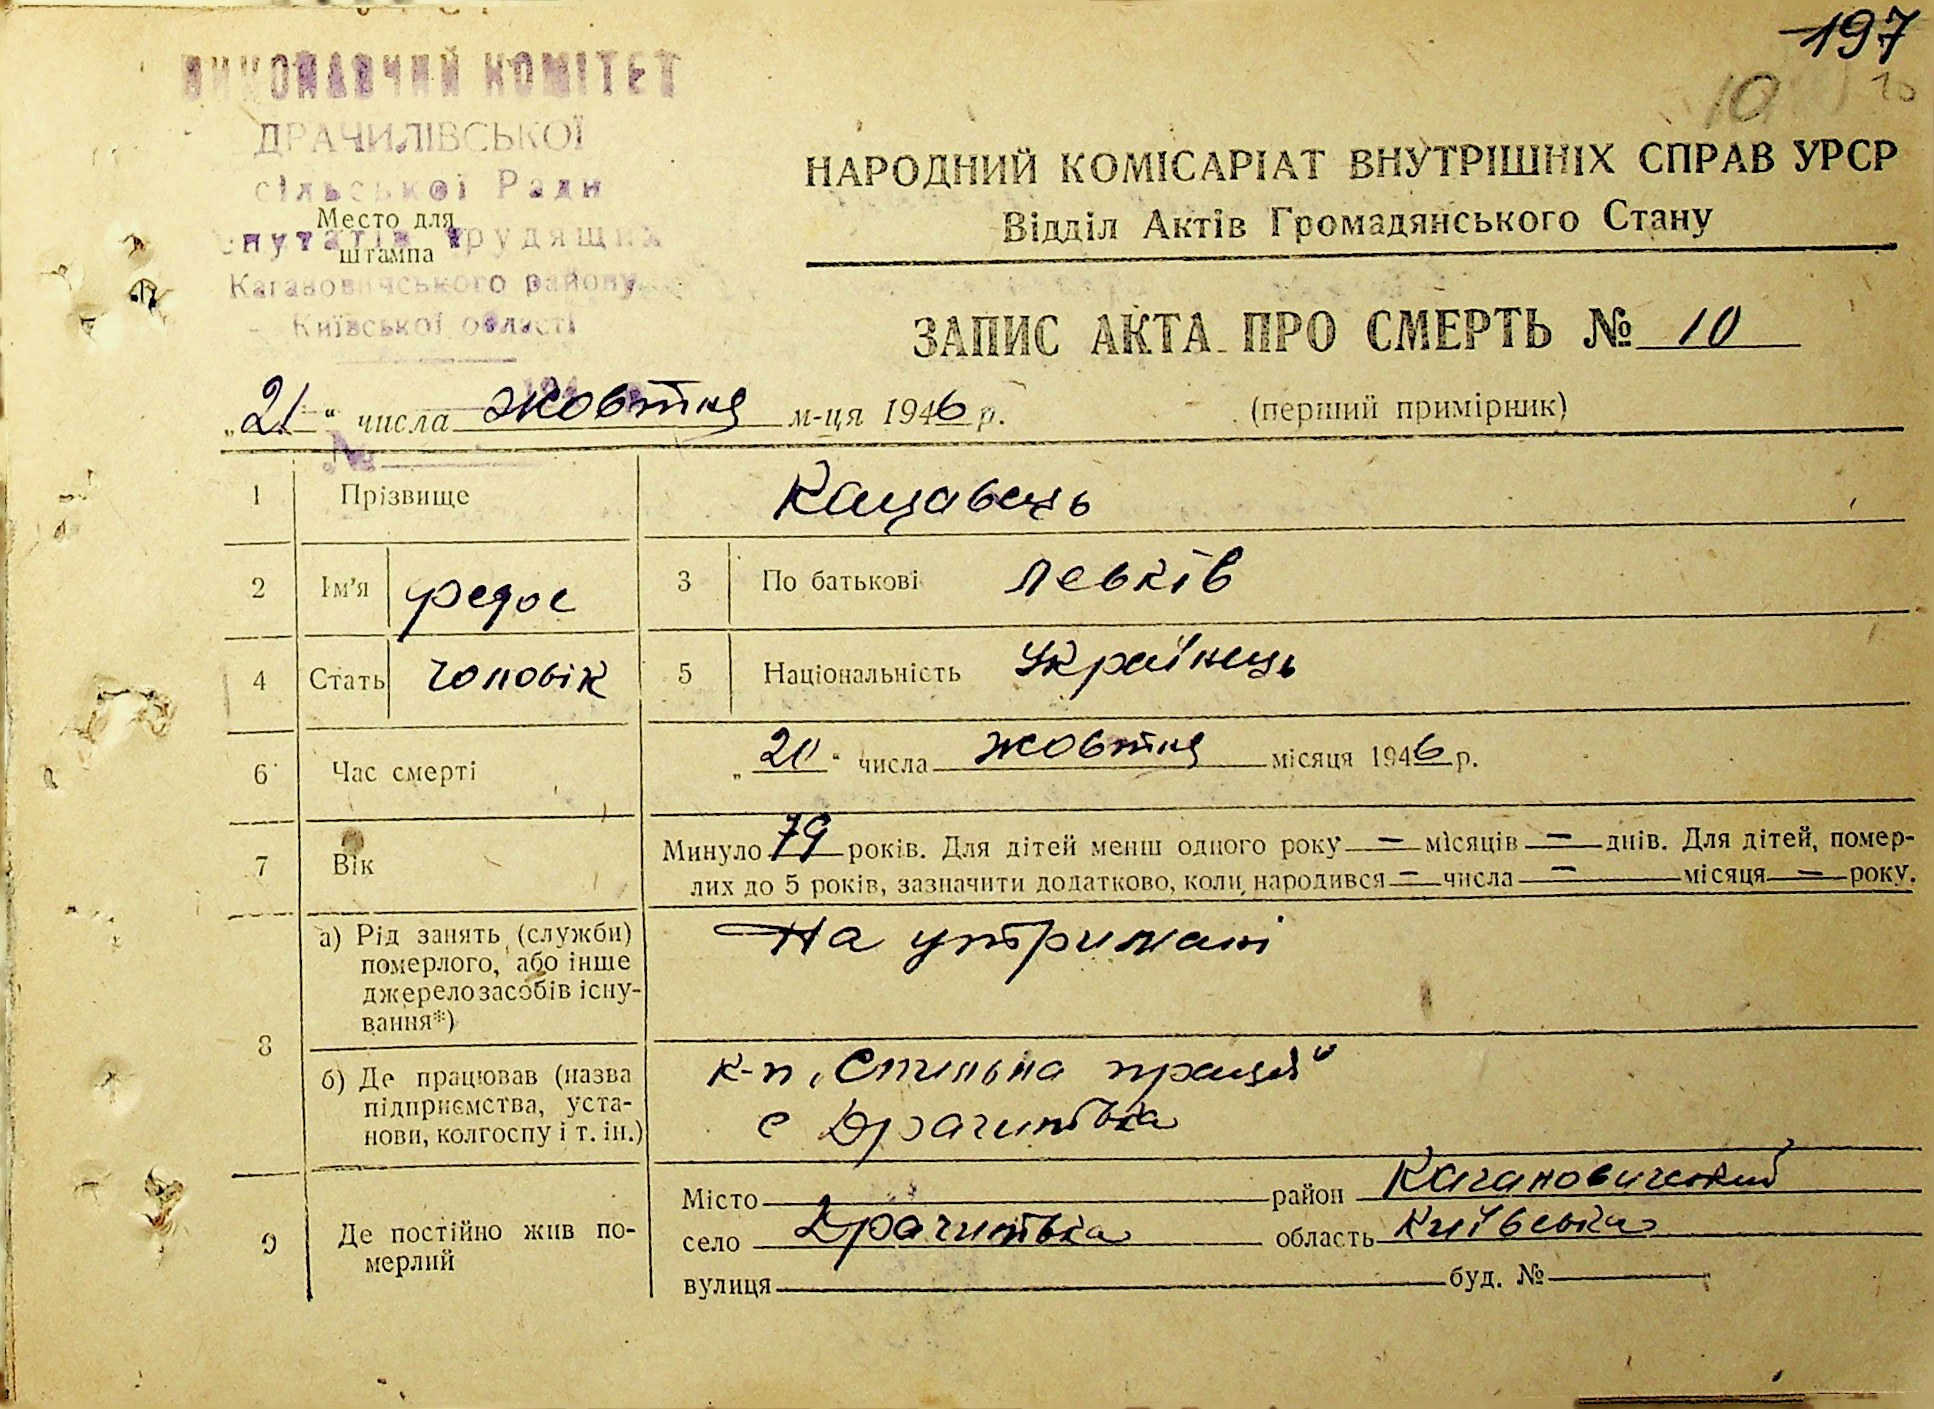 197
10
10
ВИКОНАВЧИЙ КОМІТЕТ
ДРАЧИЛІВСЬКОЇ
сільської Ради
Место для
депутатів трудящих
штампа
Кагановичського району
Київської області
№
НАРОДНИЙ КОМІСАРІАТ ВНУТРІШНІХ СПРАВ УРСР
Відділ Актів Громадянського Стану
ЗАПИС АКТА ПРО СМЕРТЬ № 10
„21“ числа жовтня м-ця 1946 р.
(перший примірник)
1 Прізвище Кацавець
2 Ім'я Федос 3 По батькові Левків
4 Стать чоловік 5 Національність Українець
6 Час смерті „20“ числа жовтня місяця 1946 р.
7 Вік Минуло 79 років. Для дітей менш одного року — місяців — днів. Для дітей, помер-
лих до 5 років, зазначити додатково, коли народився — числа — місяця — року.
8 а) Рід занять (служби) померлого, або інше джерело засобів існу-
вання*) На утримані
б) Де працював (назва підприємства, уста-
нови, колгоспу і т. ін.) к-п „Спильна праця“
с Драчилівка
9 Де постійно жив по-
мерлий
Місто район Кагановический
село Драчилівка область Київська
вулиця буд. №